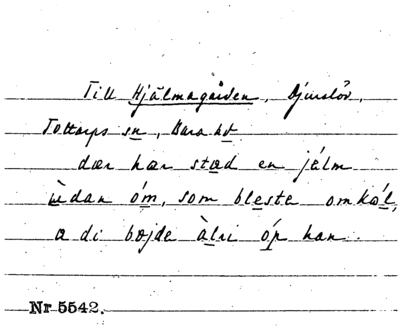 Till Hjälmagården, Djurslöv,
Tottarps sn, Bara hd
dær hær stæd en jálm
ùdan óm, som bleste omkól,
a di bojde àlri óp han.
Nr 5542.